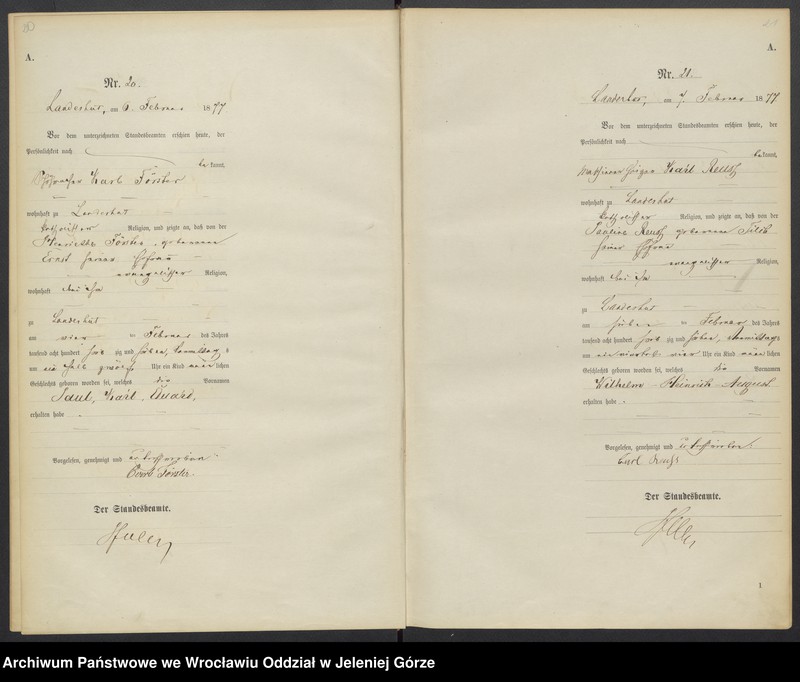 A.
Nr. 20.
Landeshut, am 6. Februar 1877
Vor dem unterzeichneten Standesbeamten erschien heute, der
Persönlichkeit nach
bekannt,
Karl Förster
wohnhaft zu Landeshut
katholischer Religion, und zeigte an, daß von der
Förster, geborenen
Ernst seiner Ehefrau
evangelischer Religion,
wohnhaft bei ihm
zu Landeshut
am vier ten Februar des Jahres
tausend acht hundert sieb zig und sieben, Vormittags
um Uhr ein Kind männlichen
Geschlechts geboren worden sei, welches die Vornamen
Paul, Karl, Eduard,
erhalten habe.
Vorgelesen, genehmigt und unterschrieben.
Carl Förster.
Der Standesbeamte.
A.
Nr. 21.
Landeshut, am 7. Februar 1877
Vor dem unterzeichneten Standesbeamten erschien heute, der
Persönlichkeit nach
bekannt,
Karl
wohnhaft zu Landeshut
katholischer Religion, und zeigte an, daß von der
Pauline geborenen
seiner Ehefrau
evangelischer Religion,
wohnhaft bei ihm
zu Landeshut
am sieben ten Februar des Jahres
tausend acht hundert sieb zig und sieben, Vormittags
um vier Uhr ein Kind männlichen
Geschlechts geboren worden sei, welches die Vornamen
Wilhelm Heinrich August
erhalten habe.
Vorgelesen, genehmigt und unterschrieben.
Carl
Der Standesbeamte.
1
Archiwum Państwowe we Wrocławiu Oddział w Jeleniej Górze